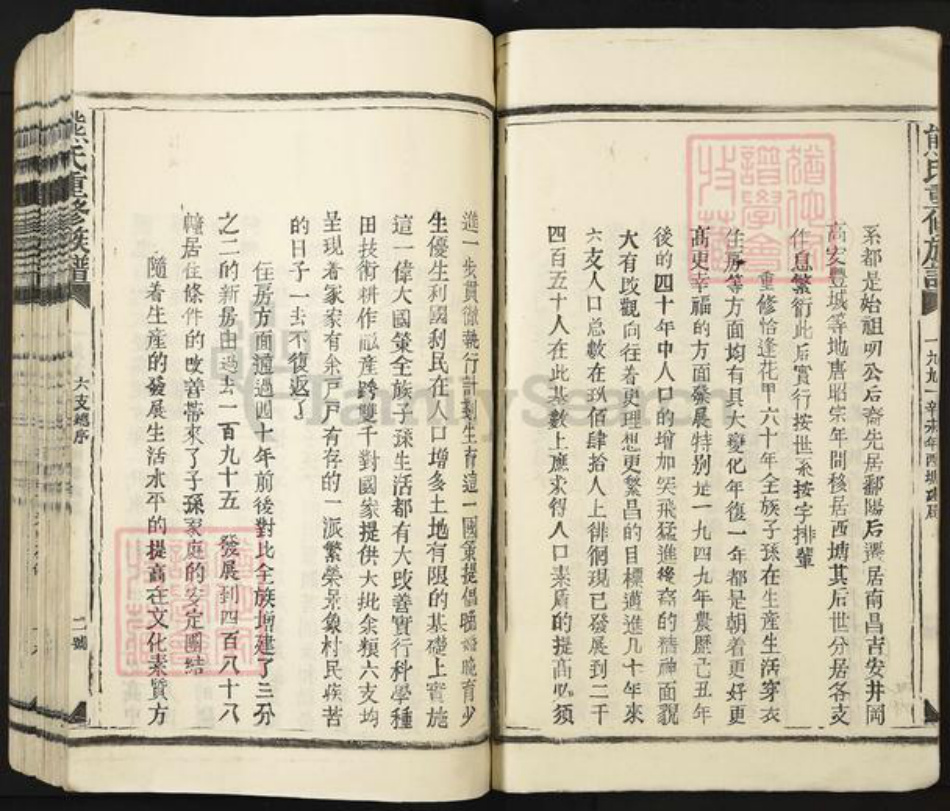 熊氏重修族譜
一九九一辛未年西塘
系都是始祖明公后裔先居鄱陽后遷居南昌吉安井岡
高安豐城等地唐昭宗年間移居西塘其后世分居各支
作息繁衍此后實行按世系按字排輩
重修恰逢花甲六十年全族子孫在生産生活穿衣
住房等方面均有具大變化年復一年都是朝着更好更
高更幸福的方面發展特别是一九四九年農歷己丑年
後的四十年中人口的增加突飛猛進後裔的精神面貌
大有改觀向往着更理想更繁昌的目標邁進几十年來
六支人口总數在玖佰肆拾人上徘徊現已發展到二千
四百五十人在此基數上應求得人口素盾的提高必須
進一步貫徹執行計劃生育這一國策提倡晚婚晚育少
生優生利國利民在人口增多土地有限的基礎上實施
這一偉大國策全族子孫生活都有大改善實行科學種
田技術耕作畝産跨雙千對國家提供大批余糧六支均
呈現着家家有余戸戸有存的一派繁榮景象村民挨苦
的日子一去不復返了
住房方面通過四十年前後對比全族增建了三分
之二的新房由過去一百九十五 發展到四百八十八
幢居住條件的改善帶來了子孫家庭的安定團結
隨着生産的發展生活水平的提高在文化素質方
熊氏重修族譜
六支總序
二號
FamilySearch